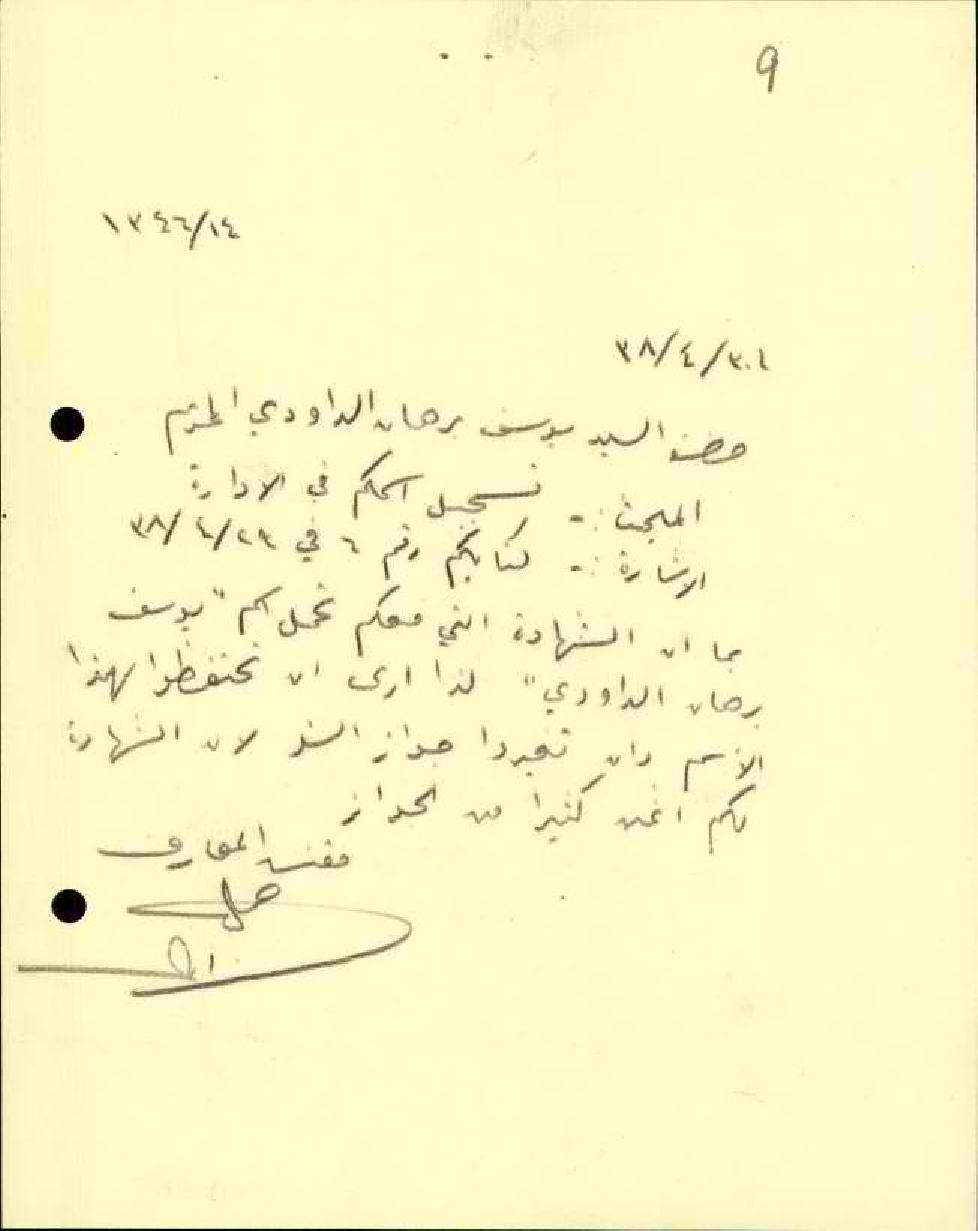 9
١٣٤٦/١٤
٣٨/٤/٣٠
حضرة السيد يوسف برهان الداودي المحترم
المبحث :- تسجيل اسمكم في الادارة
الاشارة :- كتابكم رقم ٦ في ٣٨/٤/٢٩
بما ان الشهادة التي معكم تحمل اسم "يوسف
برهان الداودي" لذا ارى ان تحتفظوا بهذا
الاسم وان تغيروا جواز السفر لان الشهادة
لكم اثمن كثيرا من الجواز
مفتش المعارف